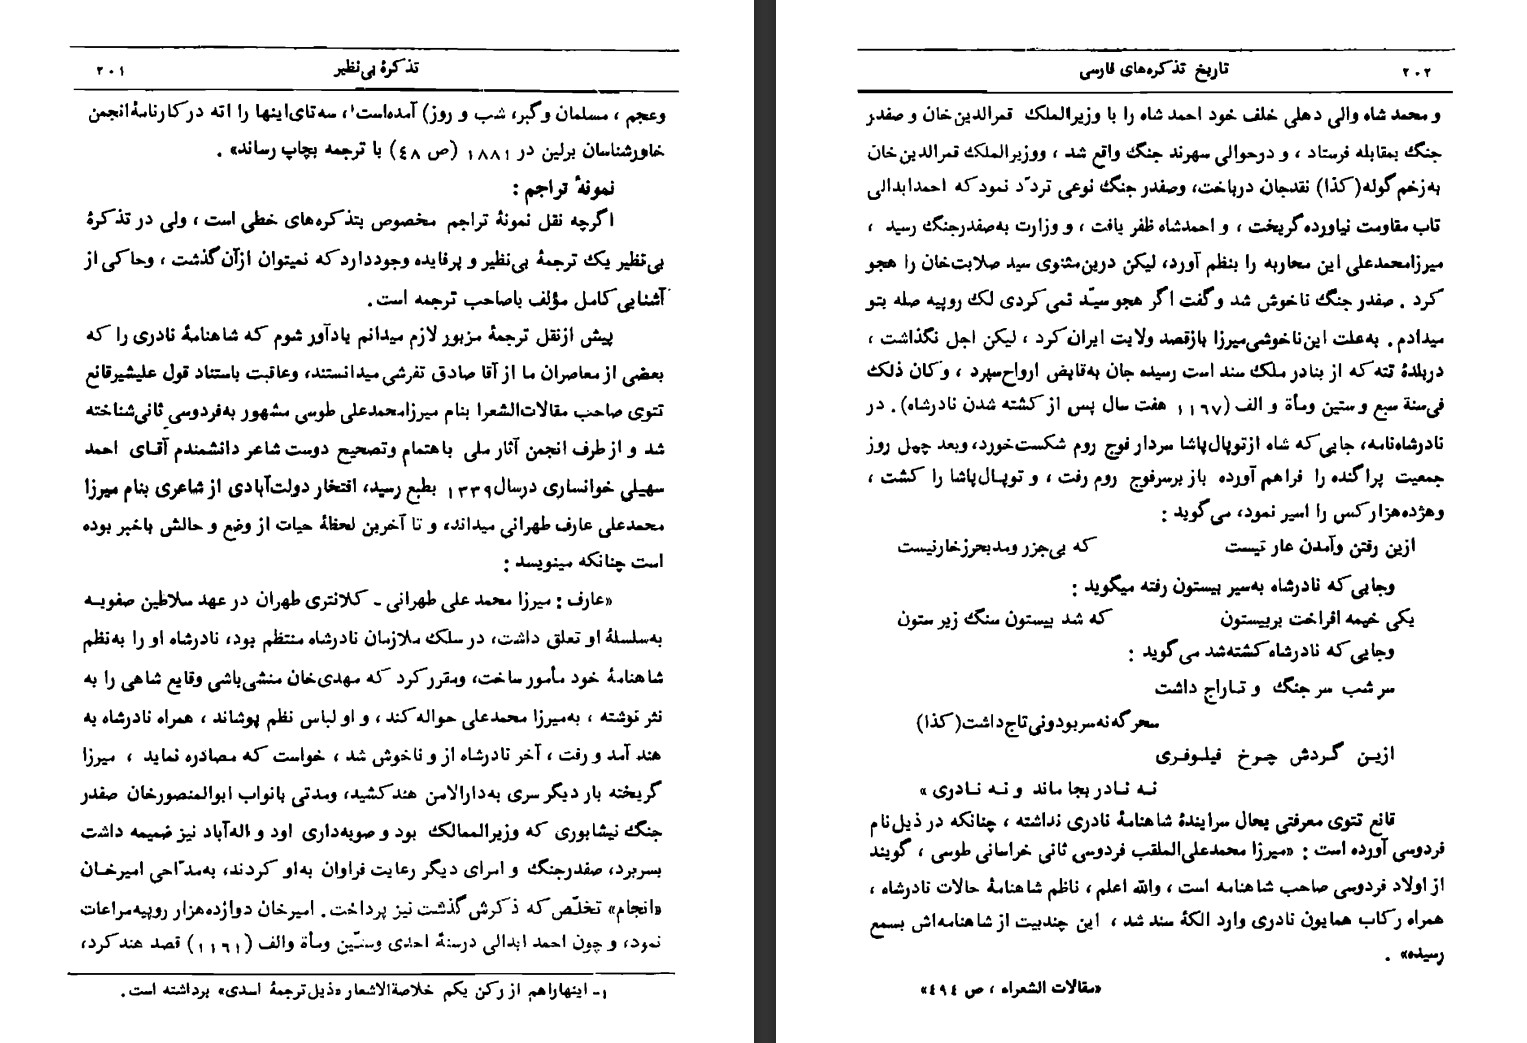 تذکرهٔ بی‌نظیر ۲۰۱
وعجم ، مسلمان وگبر، شب و روز) آمده‌است۱، سه‌تای‌اینها را اته در کارنامهٔ انجمن
خاورشناسان برلین در ۱۸۸۱ (ص ۴۸) با ترجمه بچاپ رساند» .
نمونهٔ تراجم :
اگرچه نقل نمونهٔ تراجم مخصوص بتذکره‌های خطی است ، ولی در تذکرهٔ
بی‌نظیر یک ترجمهٔ بی‌نظیر و پرفایده وجوددارد که نمیتوان ازآن گذشت ، وحاکی از
آشنایی کامل مؤلف باصاحب ترجمه است .
پیش ازنقل ترجمهٔ مزبور لازم میدانم یادآور شوم که شاهنامهٔ نادری را که
بعضی از معاصران ما از آقا صادق تفرشی میدانستند، وعاقبت باستناد قول علیشیرقانع
تتوی صاحب مقالات‌الشعرا بنام میرزامحمدعلی طوسی مشهور به‌فردوسی ثانی‌شناخته
شد و از طرف انجمن آثار ملی باهتمام وتصحیح دوست شاعر دانشمندم آقـای احمد
سهیلی خوانساری درسال۱۳۳۹ بطبع رسید، افتخار دولت‌آبادی از شاعری بنام میرزا
محمدعلی عارف طهرانی میداند، و تا آخرین لحظهٔ حیات از وضع و حالش باخبر بوده
است چنانکه مینویسد :
«عارف : میرزا محمد علی طهرانی ـ کلانتری طهران در عهد سلاطین صفویـه
به‌سلسلهٔ او تعلق داشت، در سلک ملازمان نادرشاه منتظم بود، نادرشاه او را به‌نظم
شاهنامهٔ خود مأمور ساخت، ومقرر کرد که مهدی‌خان منشی‌باشی وقایع شاهی را به
نثر نوشته ، به‌میرزا محمدعلی حواله کند ، و او لباس نظم پوشاند ، همراه نادرشاه به
هند آمد و رفت ، آخر نادرشاه از و ناخوش شد ، خواست که مصادره نماید ، میرزا
گریخته بار دیگر سری به‌دارالامن هند کشید، ومدتی بانواب ابوالمنصورخان صفدر
جنگ نیشابوری که وزیرالممالک بود و صوبه‌داری اود و اله‌آباد نیز ضمیمه داشت
بسربرد، صفدرجنگ و امرای دیگر رعایت فراوان به‌او کردند، به‌مدّاحی امیرخـان
«انجام» تخلّص که ذکرش گذشت نیز پرداخت . امیرخان دوازده‌هزار روپیه‌مراعات
نمود، و چون احمد ابدالی درسنهٔ احدی وستّین ومأة والف (۱۱۶۱) قصد هند کرد،
۱ـ اینهاراهم از رکن یکم خلاصةالاشعار «ذیل ترجمهٔ اسدی» برداشته است .
تاریخ تذکره‌های فارسی ۲۰۲
و محمد شاه والی دهلی خلف خود احمد شاه را با وزیرالملک قمرالدین‌خان و صفدر
جنگ بمقابله فرستاد ، و درحوالی سهرند جنگ واقع شد ، ووزیرالملک قمرالدین‌خان
به‌زخم گوله(کذا) نقدجان درباخت، وصفدر جنگ نوعی تردّد نمود که احمدابدالی
تاب مقاومت نیاورده گریخت ، و احمدشاه ظفر یافت ، و وزارت به‌صفدرجنگ رسید ،
میرزامحمدعلی این محاربه را بنظم آورد، لیکن درین‌مثنوی سید صلابت‌خان را هجو
کرد . صفدر جنگ ناخوش شد و گفت اگر هجو سیّد نمی‌کردی لک روپیه صله بتو
میدادم . به‌علت این‌ناخوشی‌میرزا بازقصد ولایت ایران کرد ، لیکن اجل نگذاشت ،
دربلدهٔ تته که از بنادر ملک سند است رسیده جان به‌قابض ارواح‌سپرد ، وکان ذلک
فی‌سنة سبع و ستین ومأة و الف (۱۱۶۷ هفت سال پس از کشته شدن نادرشاه) . در
نادرشاه‌نامه، جایی که شاه ازتوپال‌پاشا سردار فوج روم شکست‌خورد، وبعد چهل روز
جمعیت پراگنده را فراهم آورده باز برسرفوج روم رفت ، و توپـال‌پاشا را کشت ،
وهژده‌هزار کس را اسیر نمود، می‌گوید :
ازین رفتن وآمدن عار نیست که بی‌جزر ومد بحرزخارنیست
وجایی که نادرشاه به‌سیر بیستون رفته میگوید :
یکی خیمه افراخت بربیستون که شد بیستون سنگ زیر ستون
وجایی که نادرشاه کشته‌شد می‌گوید :
سر شب سر جنگ و تـاراج داشت
سحرگه نه‌سربودونی‌تاج‌داشت(کذا)
ازیـن گـردش چـرخ فیلـوفـری
نـه نـادر بجا ماند و نـه نـادری »
قانع تتوی معرفتی بحال سرایندهٔ شاهنامهٔ نادری نداشته ، چنانکه در ذیل نام
فردوسی آورده است : «میرزا محمدعلی‌الملقب فردوسی ثانی خراسانی طوسی ، گویند
از اولاد فردوسی صاحب شاهنامه است ، والله اعلم ، ناظم شاهنامهٔ حالات نادرشاه ،
همراه رکاب همایون نادری وارد الکهٔ سند شد ، این چندبیت از شاهنامه‌اش بسمع
رسیده» .
«مقالات الشعراء ، ص ۴۹۴»